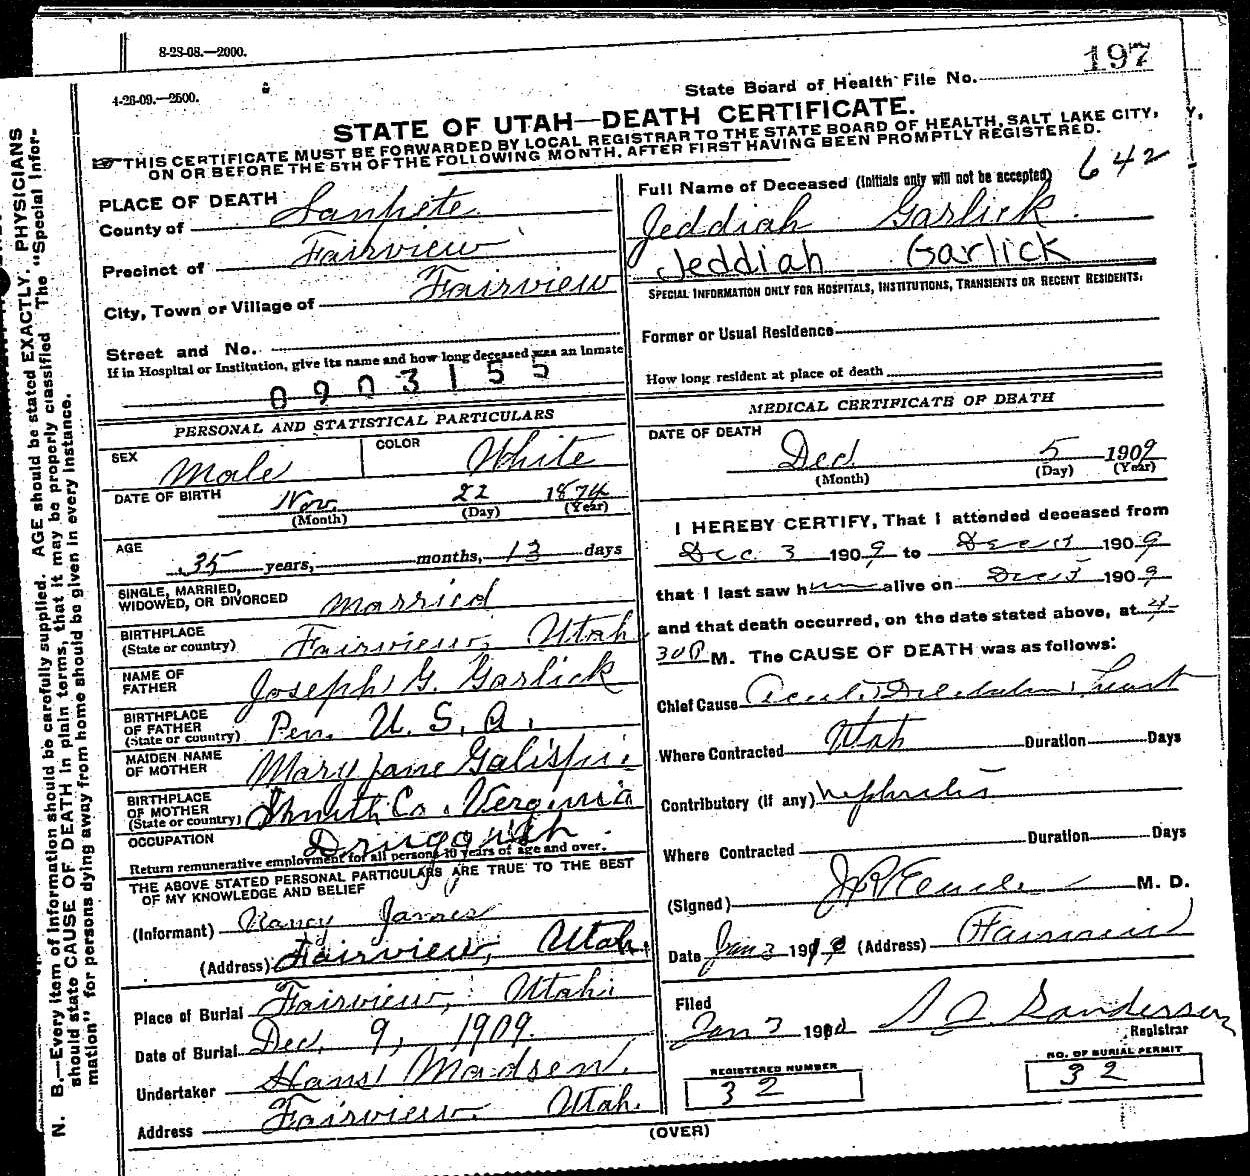 8-28-08.—2000.
4-26-09.—2500.
State Board of Health File No. 197
STATE OF UTAH—DEATH CERTIFICATE.
THIS CERTIFICATE MUST BE FORWARDED BY LOCAL REGISTRAR TO THE STATE BOARD OF HEALTH, SALT LAKE CITY,
ON OR BEFORE THE 5TH OF THE FOLLOWING MONTH, AFTER FIRST HAVING BEEN PROMPTLY REGISTERED.
642
PLACE OF DEATH
County of Sanpete
Precinct of Fairview
City, Town or Village of Fairview
Street and No.
If in Hospital or Institution, give its name and how long deceased was an Inmate
0903155
PERSONAL AND STATISTICAL PARTICULARS
SEX Male COLOR White
DATE OF BIRTH Nov. 22 1874
(Month) (Day) (Year)
AGE 35 years, months, 13 days
SINGLE, MARRIED,
WIDOWED, OR DIVORCED Married
BIRTHPLACE
(State or country) Fairview, Utah
NAME OF
FATHER Joseph G. Garlick
BIRTHPLACE
OF FATHER
(State or country) Pen. U. S. A.
MAIDEN NAME
OF MOTHER Mary Jane
BIRTHPLACE
OF MOTHER
(State or country) Co. Verginia
OCCUPATION
Return remunerative employment for all persons 10 years of age and over.
THE ABOVE STATED PERSONAL PARTICULARS ARE TRUE TO THE BEST
OF MY KNOWLEDGE AND BELIEF
(Informant) Nancy James
(Address) Fairview, Utah.
Place of Burial Fairview, Utah.
Date of Burial Dec. 9, 1909.
Undertaker Hans Madsen.
Address Fairview. Utah.
Full Name of Deceased (Initials only will not be accepted)
Jeddiah Garlick
Jeddiah Garlick
SPECIAL INFORMATION ONLY FOR HOSPITALS, INSTITUTIONS, TRANSIENTS OR RECENT RESIDENTS.
Former or Usual Residence
How long resident at place of death
MEDICAL CERTIFICATE OF DEATH
DATE OF DEATH
Dec. 5 1909
(Month) (Day) (Year)
I HEREBY CERTIFY, That I attended deceased from
Dec. 3 1909 to Dec 1909
that I last saw h alive on Dec 5 1909
and that death occurred, on the date stated above, at 4
30 P M. The CAUSE OF DEATH was as follows:
Chief Cause Acute heart
Where Contracted Utah Duration Days
Contributory (if any) Nephritis
Where Contracted Duration Days
(Signed) M. D.
Date Jan 3 19 (Address) Fairview
Filed
Jan 3 19 Sanderson
Registrar
REGISTERED NUMBER
32
NO. OF BURIAL PERMIT
32
(OVER)
N. B.—Every item of information should be carefully supplied. AGE should be stated EXACTLY. PHYSICIANS
should state CAUSE OF DEATH in plain terms, that it may be properly classified The "Special Infor-
mation" for persons dying away from home should be given in every instance.